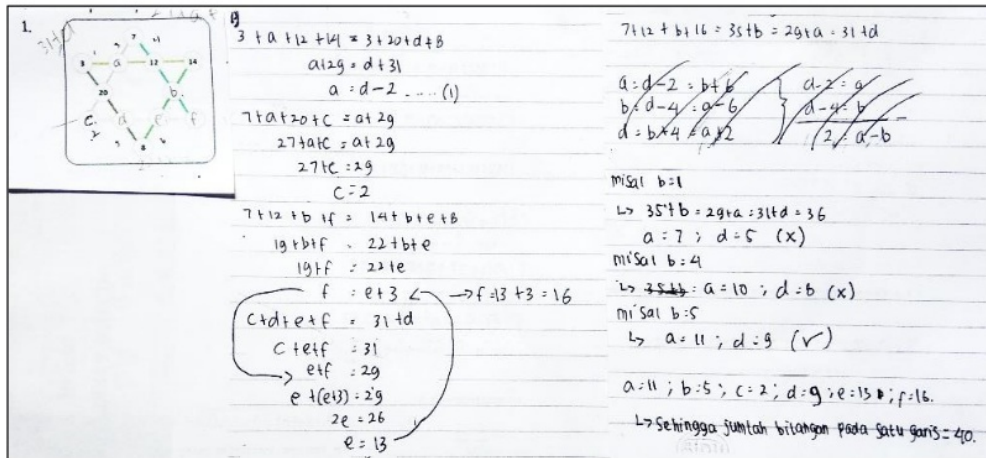 1.
31+d
7
3 a 12 14
20 b
c d e f
2
8
3 + a + 12 + 14 = 3 + 20 + d + 8
a + 29 = d + 31
a = d - 2 ..... (1)
7 + a + 20 + c = a + 29
27 + a + c = a + 29
27 + c = 29
c = 2
7 + 12 + b + f = 14 + b + e + 8
19 + b + f = 22 + b + e
19 + f = 22 + e
f = e + 3 → f = 13 + 3 = 16
c + d + e + f = 31 + d
c + e + f = 31
e + f = 29
e + (e+3) = 29
2e = 26
e = 13
7 + 12 + b + 16 = 35 + b = 29 + a = 31 + d
a = d - 2 = b + 6
b = d - 4 = a - 6
d = b + 4 = a + 2
d - 2 = a
d - 4 = b
2 = a - b
misal b = 1
↳ 35 + b = 29 + a = 31 + d = 36
a = 7 ; d = 5 (x)
misal b = 4
↳ 35+b = a = 10 ; d = 8 (x)
misal b = 5
↳ a = 11 ; d = 9 (v)
a = 11 ; b = 5 ; c = 2 ; d = 9 ; e = 13 ; f = 16.
↳ Sehingga jumlah bilangan pada satu garis = 40.